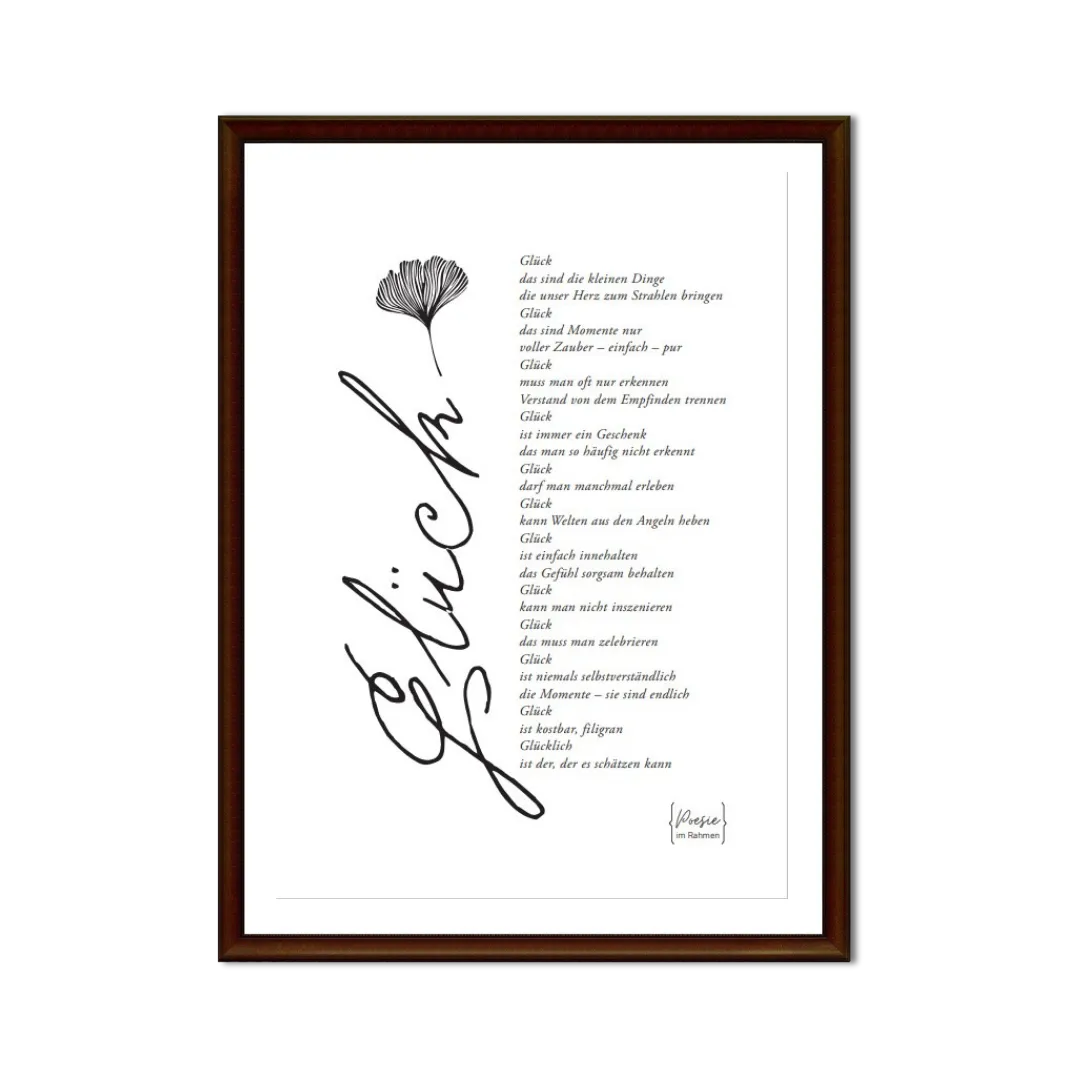 Glück
Glück
das sind die kleinen Dinge
die unser Herz zum Strahlen bringen
Glück
das sind Momente nur
voller Zauber – einfach – pur
Glück
muss man oft nur erkennen
Verstand von dem Empfinden trennen
Glück
ist immer ein Geschenk
das man so häufig nicht erkennt
Glück
darf man manchmal erleben
Glück
kann Welten aus den Angeln heben
Glück
ist einfach innehalten
das Gefühl sorgsam behalten
Glück
kann man nicht inszenieren
Glück
das muss man zelebrieren
Glück
ist niemals selbstverständlich
die Momente – sie sind endlich
Glück
ist kostbar, filigran
Glücklich
ist der, der es schätzen kann
{Poesie
im Rahmen}